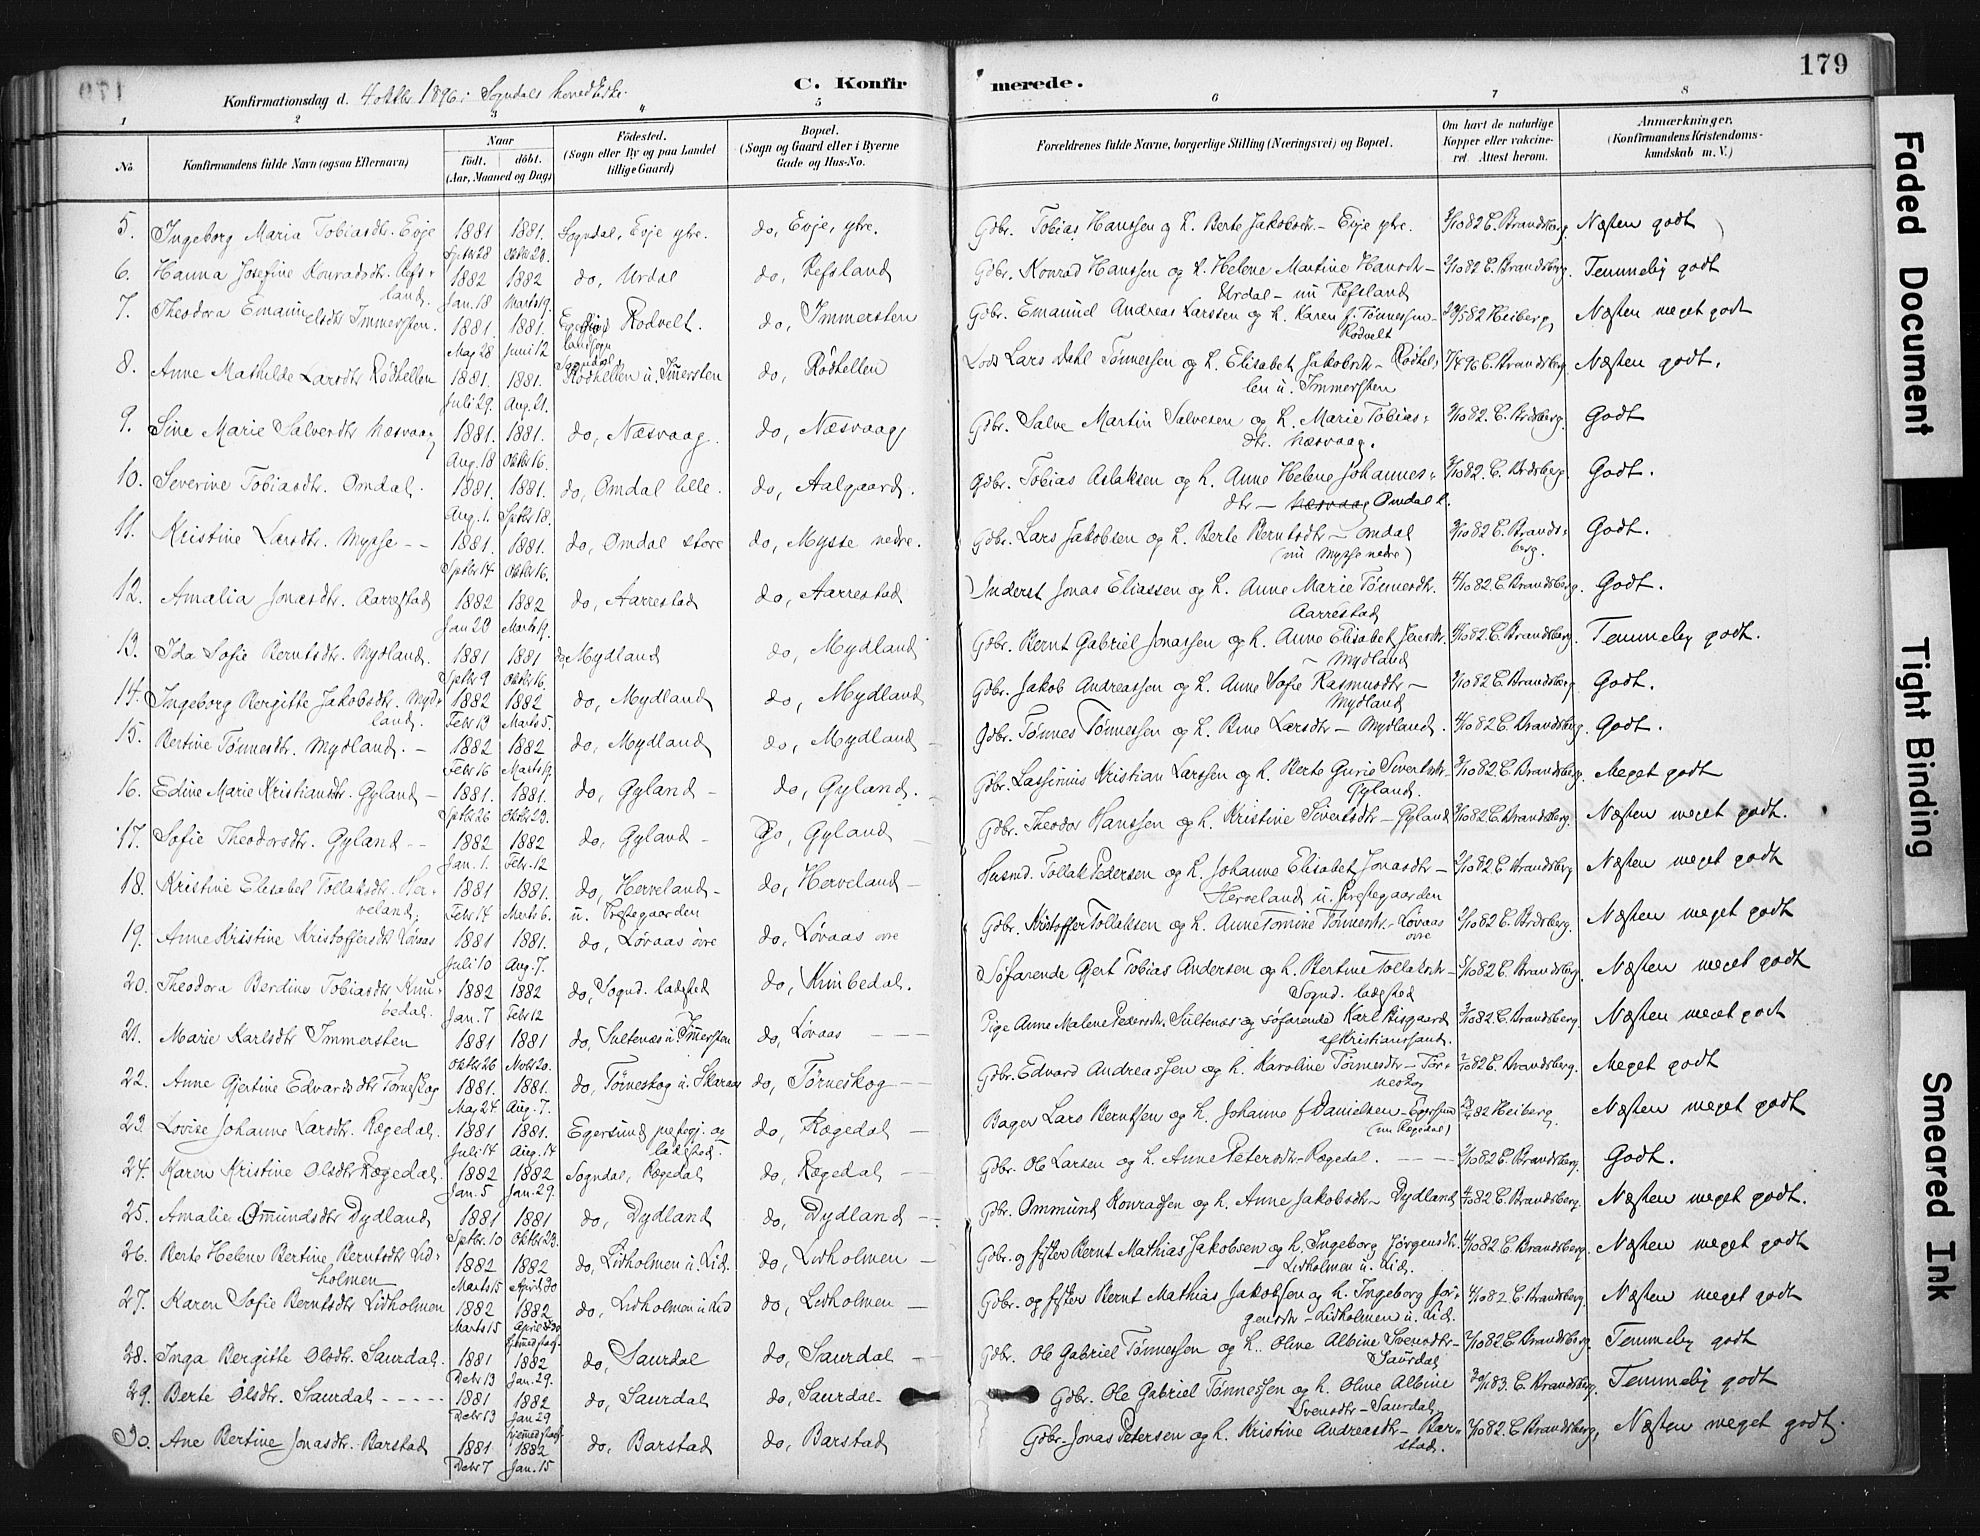 179
Konfirmationsdag d. 4 oktbr. 1896 i Sogndals hovedkirke.
C. Konfirmerede.
1 2 3 4 5 6 7 8
No. | Konfirmandens fulde Navn (ogsaa Efternavn) | Naar født. døbt. (Aar, Maaned og Dag) | Födested. (Sogn eller By og paa Landet tillige Gaard) | Bopæl. (Sogn og Gaard eller i Byerne Gade og Hus-No. | Forældrenes fulde Navne, borgerlige Stilling (Næringsvei) og Bopæl. | Om havt de naturlige Kopper eller vakcineret. Attest herom. | Anmærkninger. (Konfirmandens Kristendomskundskab m. V.)
5. Ingeborg Maria Tobiasdtr. Evje | 1881 Sptbr 28 | 1881. Oktbr 20. | Sogndal, Evje ytre. | do, Evje, ytre. | Gdbr. Tobias Hanssen og h. Berte Jakobsdtr - Evje ytre. | 3/10 82 C. Brandsberg. | Næsten godt
6. Hanna Josefine Konradsdtr. Refsland. | 1882 Jan. 18 | 1882 Marts 19. | do, Urdal | do, Refsland | Gdbr. Konrad Hanssen og h. Helene Martine Hansdtr - Urdal - nu Refsland | 3/10 82 C. Brandsberg. | Temmelig godt
7. Theodora Emanuelsdtr Immersten. | 1881. Maj 28 | 1881. Juni 12 | Egersund landsogn Rodvelt. | do, Immersten | Gdbr. Emanuel Andreas Larssen og h. Karen f. Tønnessen - Rodvelt | 82 Heiberg | Næsten meget godt
8. Anne Mathilde Larsdtr Rödhellen | 1881. Juli 29. | 1881. Aug. 21. | Sogndal Rödhellen u. Immersten | do, Rödhellen | Lods Lars Dehl Tønnessen og h. Elisabet Jakobsdtr - Rödhellen u. Immersten | 7/4 96 C. Brandsberg. | Næsten godt.
9. Sine Marie Salvesdtr Næsvaag | 1881. Aug. 18 | 1881. Oktbr 16. | do, Næsvaag. | do, Næsvaag | Gdbr. Salve Martin Salvesen og h. Marie Tobiasdtr. Næsvaag. | 3/10 82. C. Brdsberg. | Godt
10. Severine Tobiasdtr. Omdal. | 1881. Aug. 1. | 1881. Sptbr 18. | do, Omdal lille. | do, Aalgaard. | Gdbr. Tobias Aslaksen og h. Anne Helene Johannesdtr - Næsvaag Omdal l. | 3/10 82. C. Brdsberg. | Godt.
11. Kristine Larsdtr. Mysse - - | 1881. Sptbr 14 | 1881. Oktbr 16. | do, Omdal store | do, Mysse nedre. | Gdbr. Lars Jakobsen og h. Berte Berntsdtr - Omdal (nu Mysse nedre) | 3/10 82 C. Brandsberg. | Godt.
12. Amalia Jonasdtr. Aarrestad | 1882 Jan 20 | 1882 Marts 19. | do, Aarrestad | do, Aarrestad | Inderst Jonas Eliassen og h. Anne Marie Tønnesdtr. Aarrestad | 4/10 82. C. Brandsberg. | Godt.
13. Ida Sofie Berntsdtr. Mydland. | 1881 Sptbr 9 | 1881 Oktbr 16. | do Mydland | do, Mydland | Gdbr. Bernt Gabriel Jonassen og h. Anne Elisabet Jensdtr. - Mydland | 4/10 82. C. Brandsberg. | Temmelig godt.
14. Ingeborg Bergitte Jakobsdtr. Mydland. | 1882 Febr 13 | 1882 Marts 5. | do, Mydland | do, Mydland | Gdbr. Jakob Andreassen og h. Anne Sofie Rasmusdtr - Mydland | 3/10 82 C. Brandsberg. | Godt.
15. Bertine Tønnesdtr. Mydland. - | 1882 Febr 16 | 1882 Marts 19. | do, Mydland | do, Mydland | Gdbr. Tønnes Tønnessen og h. Bine Larsdtr - Mydland. | 4/10 82. C. Brandsberg. | Godt.
16. Edine Marie Kristiansdtr. Gyland - | 1881. Sptbr 26 | 1881. Oktbr 23. | do, Gyland - | do, Gyland. | Gdbr. Lassinius Kristian Larssen og h. Berte Gurie Sivertsdtr - Gyland. | 3/10 82 C. Brandsberg. | Meget godt
17. Sofie Theodorsdtr. Gyland - - | 1882 Jan. 1. | 1882 Febr. 12 | do, Gyland - | do, Gyland | Gdbr. Theodor Hanssen og h. Kristine Sivertsdtr - Gyland | 3/10 82 C. Brandsberg. | Næsten meget godt.
18. Kristine Elisabet Tollaksdtr. Herveland. | 1881 Febr 14 | 1881. Marts 6. | do, Herveland - u. Præstegaarden | do, Herveland - | Husmd. Tollak Pedersen og h. Johanne Elisabet Jonasdtr - Herveland u. Præstegaarden | 3/10 82 C. Brandsberg | Næsten meget godt
19. Anne Kristine Kristoffersdtr Løvaas | 1881 Juli 10 | 1881. Aug. 7. | do, Løvaas övre | do, Løvaas övre | Gdbr. Kristoffer Tollaksen og h. Anne Tomine Tønnesdtr. - Løvaas övre | 3/10 82 C. Brdsberg. | Næsten meget godt
20. Theodora Berdine Tobiasdtr, Knubedal. | 1882 Jan. 7 | 1882 Febr 12 | do, Sognd. ladested | do, Knubedal. | Søfarende Gjert Tobias Andersen og h. Bertine Tollaksdtr - Sognd. ladested | 3/10 82 C. Brandsberg | Næsten meget godt
21. Marie Karlsdtr Immersten | 1881 Oktbr 26 | 1881 Novbr 20. | do, Sultenæs u. Immersten | do, Løvaas | Pige Anne Malene Pedersdtr. Sultenæs og søfarende Karl Bisgaard af Kristianssand. | 3/10 82. C. Brandsberg. | Næsten meget godt
22. Anne Gjertine Edvardsdtr Tørneskog | 1881. Maj 24 | 1881. Aug. 7. | do, Tørneskog u. Skaraas | do, Tørneskog - - | Gdbr. Edvard Andreassen og h. Karoline Tønnesdtr - Tørneskog | 82 C. Brandsberg. | Meget godt
23. Lovise Johanne Larsdtr. Rægedal. | 1881 Juli 14 | 1881. Aug. 14 | Egersund præstegj. og ladested. | do, Rægedal - | Bager Lars Berntsen og h. Johanne f. Danielsen - Egersund (nu Rægedal) | 82 Heiberg. | Næsten meget godt
24. Karen Kristine Olsdtr Rægedal. | 1882 Jan. 5 | 1882 Jan. 29. | Sogndal, Rægedal | do, Rægedal - | Gdbr. Ole Larsen og h. Anne Petersdtr - Rægedal. - - | 3/10 82 C. Brandsberg. | Godt.
25. Amalie Ommundsdtr Dydland | 1881 Sptbr. 10 | 1881 Oktbr 23. | do, Dydland | do, Dydland - - | Gdbr. Ommund Konradsen og h. Anne Jakobsdtr - Dydland | 4/10 82 C. Brandsberg. | Næsten meget godt.
26. Berte Helene Bertine Berntsdtr Lidholmen | 1882 Marts 15 | 1882 April 30 | do, Lidholmen u. Lid. | do, Lidholmen - | Gdbr. og fisker Bernt Mathias Jakobsen og h. Ingeborg Jørgensdtr. - Lidholmen u. Lid. | 4/10 82. C. Brandsberg. | Næsten meget godt
27. Karen Sofie Berntsdtr Lidholmen | 1882 Marts 15 | 1882 April 30 hjemmedøbt | do, Lidholmen u Lid | do, Lidholmen - | Gdbr. og fisker Bernt Mathias Jakobsen og h. Ingeborg Jørgensdtr - Lidholmen u. Lid. | 4/10 82. C. Brandsberg. | Næsten meget godt
28. Inga Bergitte Olsdtr. Saurdal. | 1881 Debr 13 | 1882 Jan. 29. | do, Saurdal | do, Saurdal - - | Gdbr. Ole Gabriel Tønnessen og h. Oline Albine Svensdtr - Saurdal | 3/10 82 C. Brandsberg. | Temmelig godt
29. Berte Olsdtr. Saurdal - - - - | 1881 Debr 13 | 1882 Jan 29 | do, Saurdal | do, Saurdal - | Gdbr. Ole Gabriel Tønnessen og h. Oline Albine Svensdtr - Saurdal | 83. C. Brandsberg. | Temmelig godt
30. Ane Bertine Jonasdtr. Barstad | 1881 Debr 7 | 1882 Jan. 15 | do, Barstad | do, Barstad | Gdbr. Jonas Petersen og h. Kristine Andreasdtr - Barstad. | 3/10 82. C Brandsberg, | Næsten meget godt.
Faded Document
Tight Binding
Smeared Ink